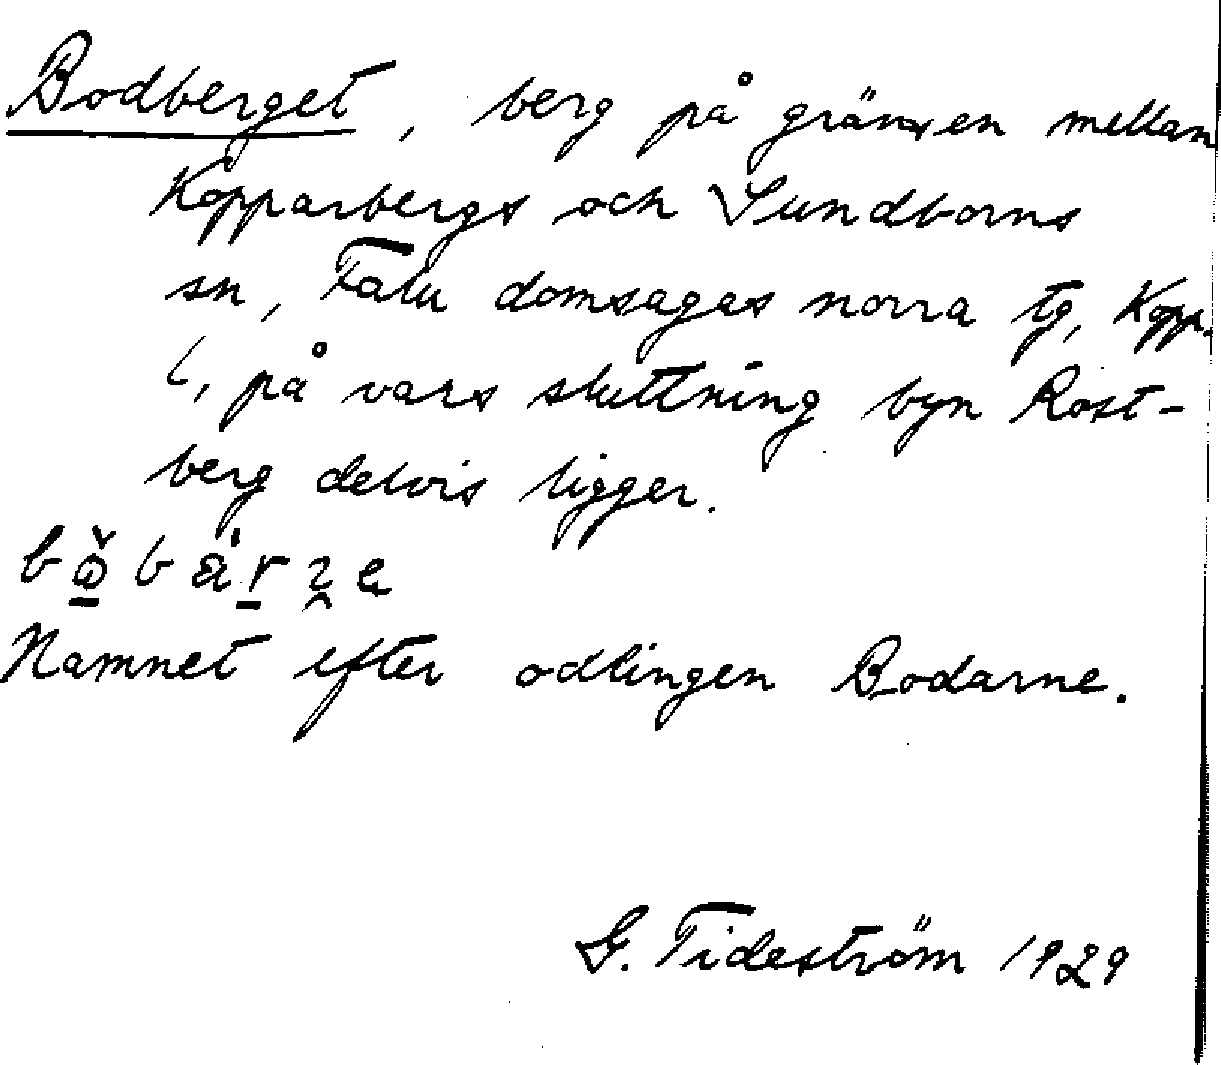 Bodberget, berg på gränsen mellan
Kopparbergs och Sundborns
sn, Falu domsagas norra tg, Kopp.
l, på vars sluttning byn Rost-
berg delvis ligger.
Namnet efter odlingen Bodarne.
G. Tideström 1929